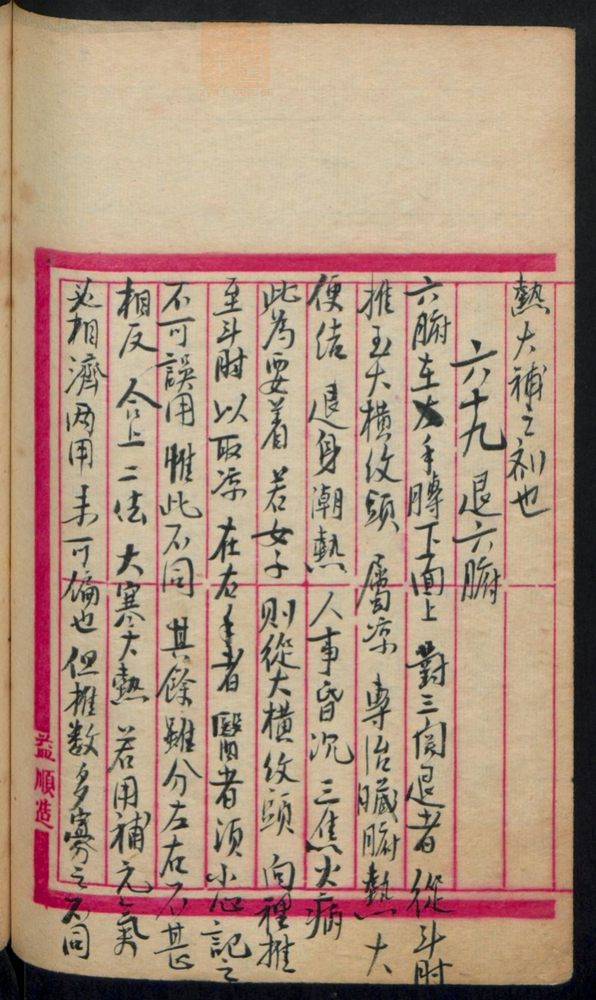 熱大補之劑也
六十九 退六腑
六腑在左手膊下面上 對三関退者 從斗肘
推至大橫紋頭 屬凉 專治臟腑熱 大
便结 退身潮熱 人事昏沉 三焦火病
此為要着 若女子 則從大橫紋頭 向裡推
至斗肘 以取凉 在右手者 醫者須小心記之
不可誤用 惟此不同 其餘雖分左右 不甚
相反 合上二法 大寒大熱 若用補元氣
必相濟両用 未可偏也 但推数多寡之不同
益順造